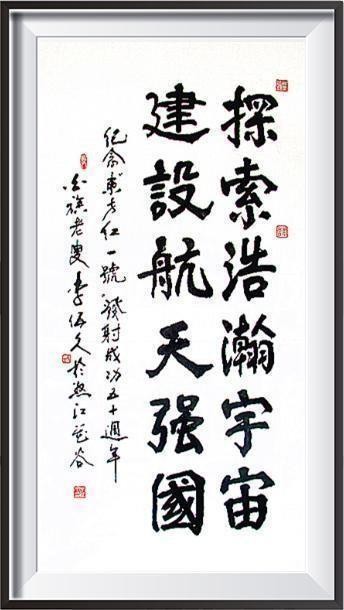 探索浩瀚宇宙
建設航天强國
纪念東方红一號發射成功五十週年
白族老叟李伍久於怒江花谷